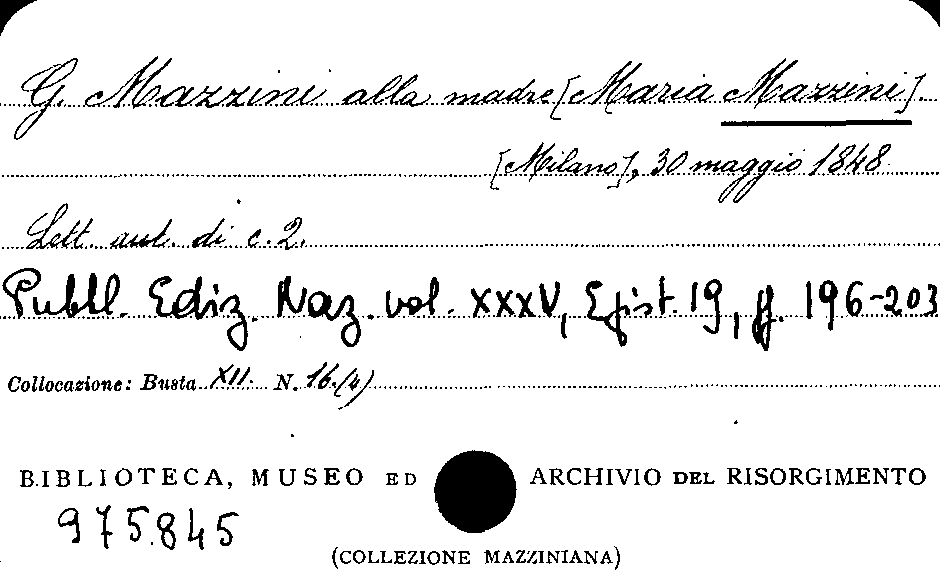 G. Mazzini alla madre [Maria Mazzini].
[Milano], 30 maggio 1848
Lett. aut. di c. 2.
Pubbl. Ediz. Naz. vol. XXXV, Epist. 19, pp. 196-203
Collocazione: Busta XII. N. 16.(4)
BIBLIOTECA, MUSEO ED ARCHIVIO DEL RISORGIMENTO
975845
(COLLEZIONE MAZZINIANA)